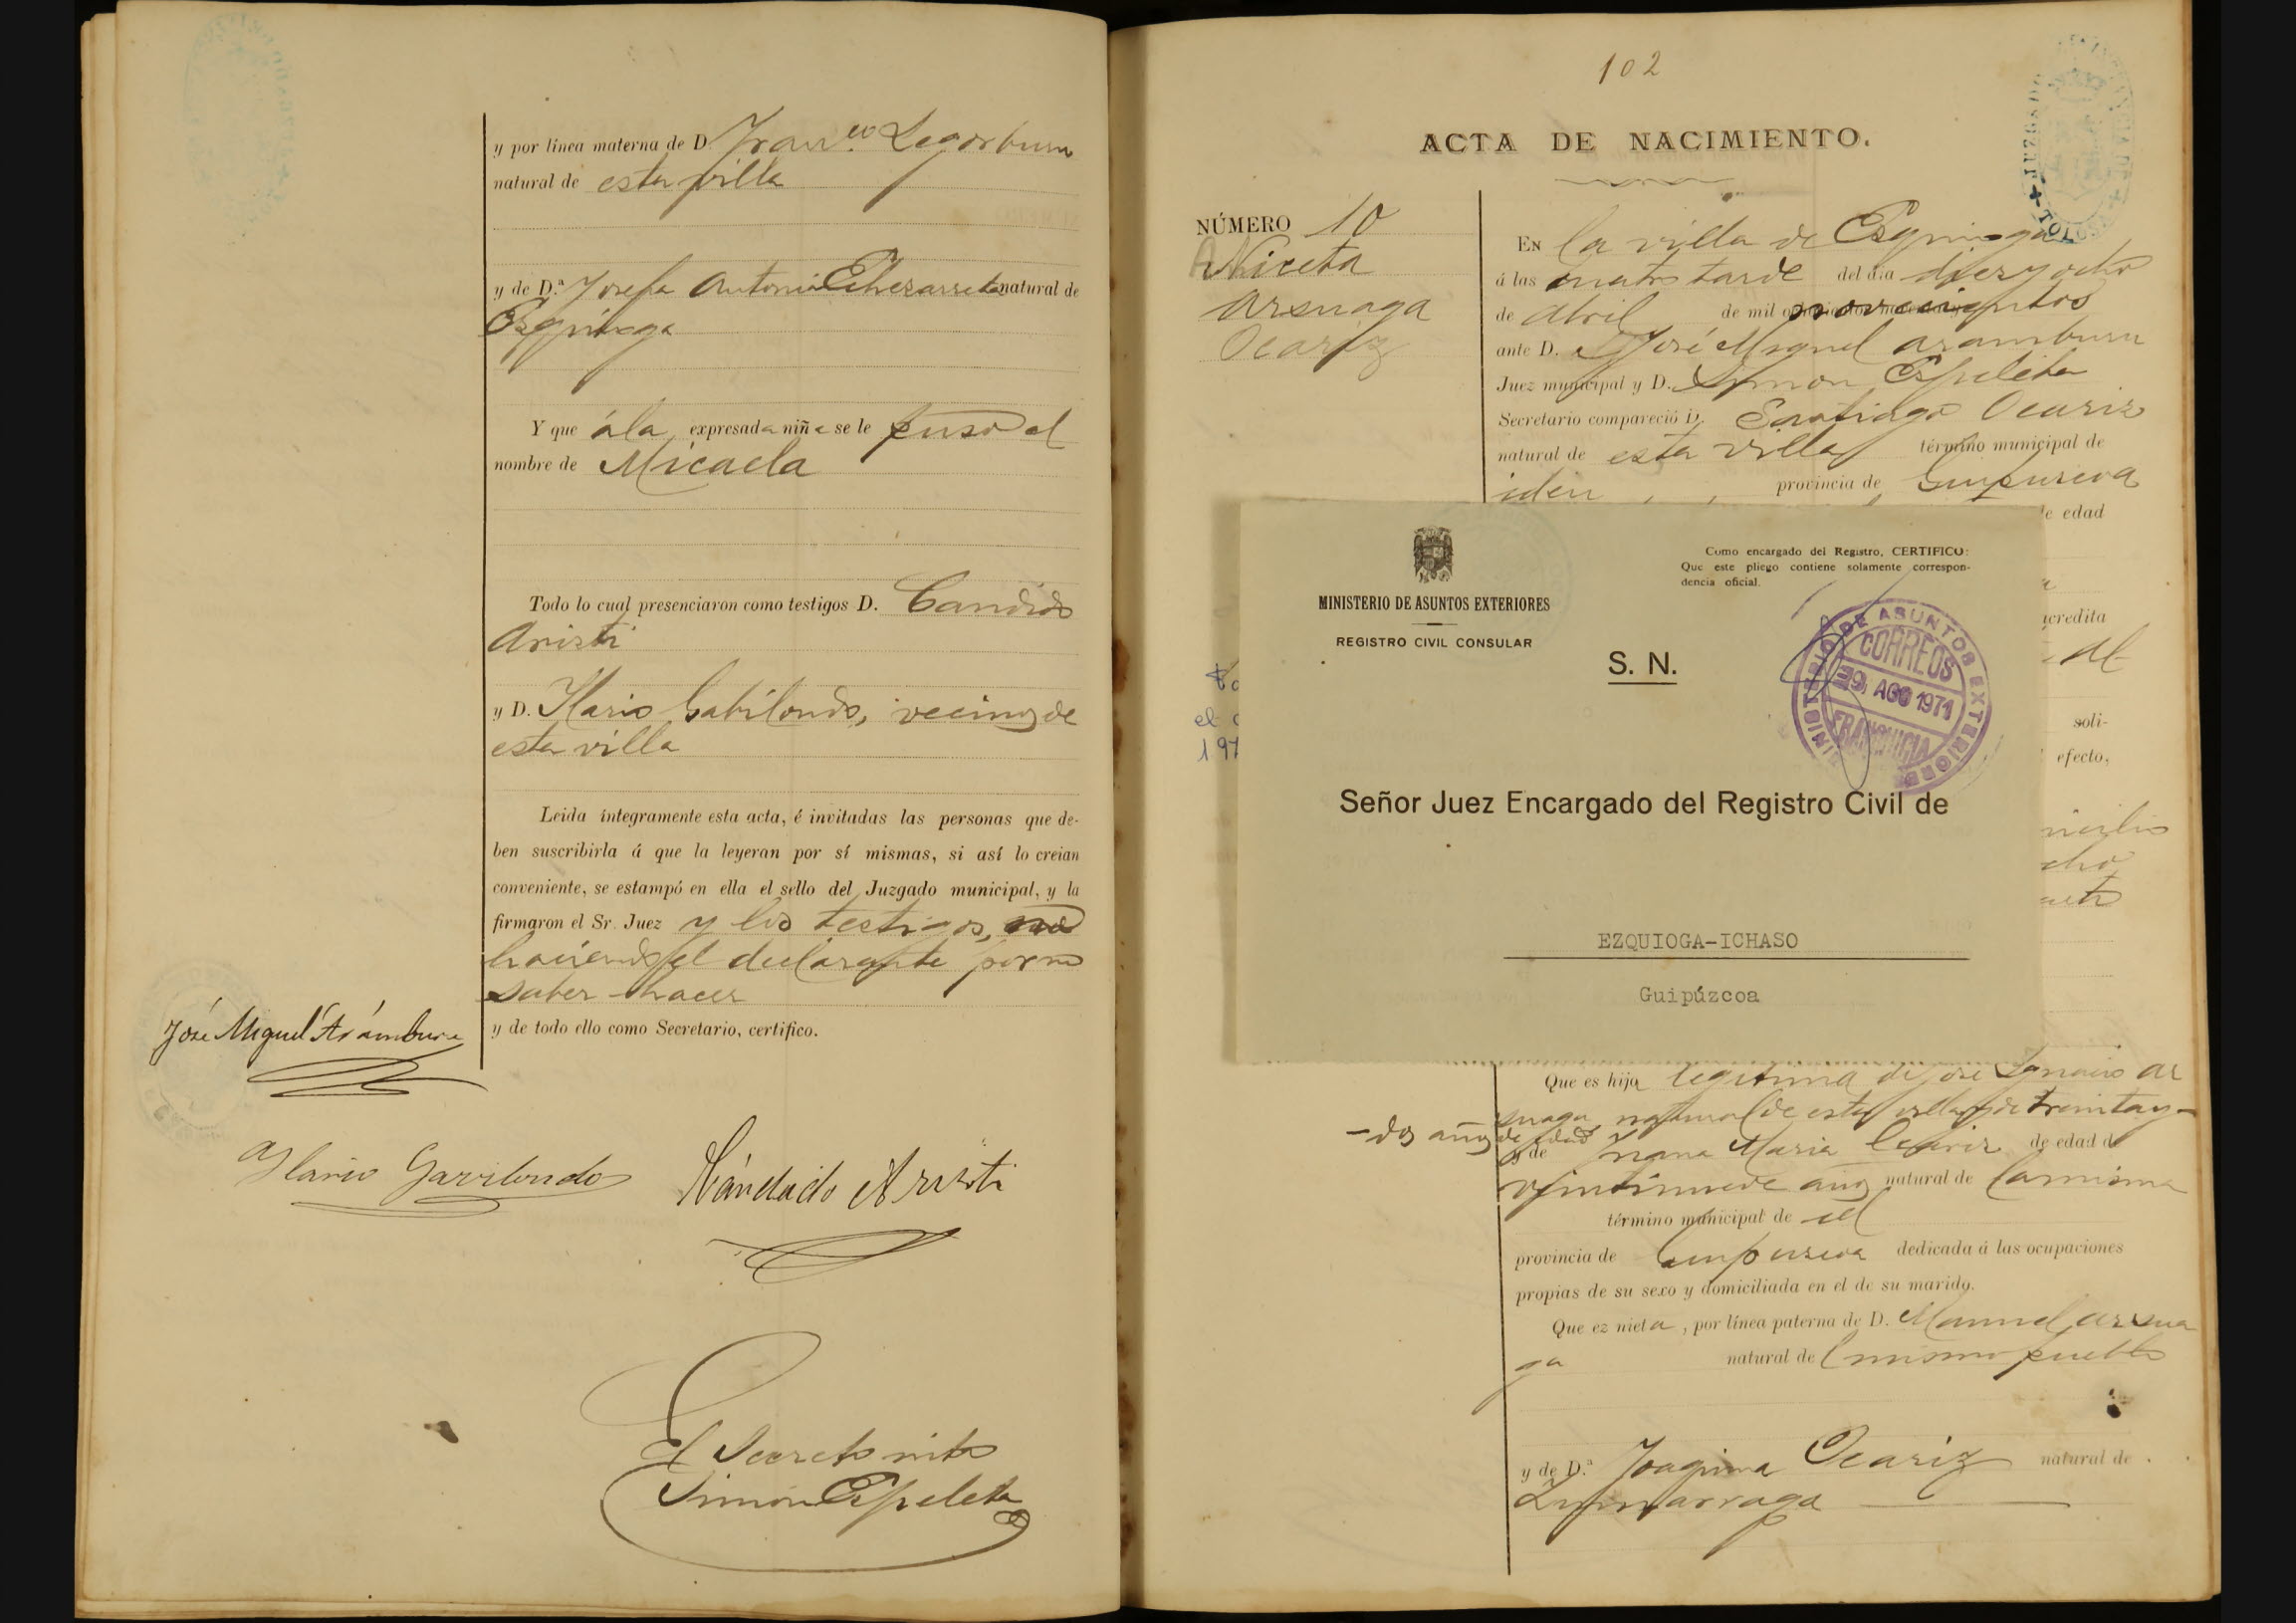 y por línea materna de D. Franco. Legorburu
natural de esta villa
y de D.ª Josefa Antonia Echezarreta natural de
Ezquioga
Y que á la expresada niña se le puso el
nombre de Micaela
Todo lo cual presenciaron como testigos D. Candido
Aristi
y D. Ilario Gabilondo, vecinos de
esta villa
Leida íntegramente esta acta, é invitadas las personas que de-
ben suscribirla á que la leyeran por sí mismas, si así lo creian
conveniente, se estampó en ella el sello del Juzgado municipal, y la
firmaron el Sr. Juez y los testigos, no
haciendo el declarante por no
saber hacer
y de todo ello como Secretario, certifico.
José Miguel Arámburu
Ylario Gavilondo
Cándido Aristi
El Secretario
Simon Espeleta
102
ACTA DE NACIMIENTO.
NÚMERO 10
Aniceta
Arsuaga
Ocariz
En la villa de Esquioga
á las cuatro tarde del dia diez y ocho
de Abril de mil novecientos
ante D. José Miguel Aramburu
Juez municipal y D. Simon Espeleta
Secretario compareció D. Santiago Ocariz
natural de esta villa término municipal de
idem provincia de Guipuscoa
de edad
acredita
soli-
efecto,
el
197
MINISTERIO DE ASUNTOS EXTERIORES
REGISTRO CIVIL CONSULAR
Como encargado del Registro, CERTIFICO:
Que este pliego contiene solamente correspon-
dencia oficial.
S. N.
MINISTERIO DE ASUNTOS EXTERIORES
CORREOS
9 AGO 1971
FRANQUICIA
Señor Juez Encargado del Registro Civil de
EZQUIOGA-ICHASO
Guipúzcoa
Que es hija legitima de José Ygnacio Ar
suaga natural de esta villa de treinta y
-dos años de edad
y de Juana Maria Ocariz de edad de
veintinueve años natural de la misma
término municipal de id
provincia de Guipuscoa dedicada á las ocupaciones
propias de su sexo y domiciliada en el de su marido.
Que es nieta, por línea paterna de D. Manuel Arsua
ga natural de l mismo pueblo
y de D.ª Joaquina Ocariz natural de
Zumarraga